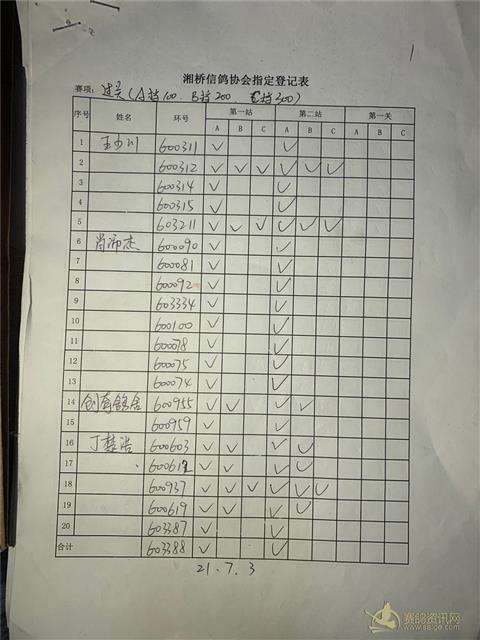 1
湘桥信鸽协会指定登记表
赛项：过关(A指100 B指200 C指300)
序号 姓名 环号 第一站 第二站 第一关
A B C A B C A B C
1 600311 ✓ ✓
2 600312 ✓ ✓ ✓ ✓ ✓ ✓
3 600314 ✓ ✓
4 600315 ✓ ✓
5 603211 ✓ ✓ ✓ ✓ ✓ ✓
6 尚沛杰 600090 ✓ ✓
7 600081 ✓ ✓
8 600092 ✓ ✓
9 603334 ✓ ✓
10 600100 ✓ ✓
11 600078 ✓ ✓
12 600075 ✓ ✓
13 600074 ✓ ✓
14 创奇鸽舍 600955 ✓ ✓ ✓ ✓
15 600959 ✓ ✓
16 丁楚浩 600603 ✓ ✓ ✓ ✓
17 600612 ✓ ✓ ✓ ✓
18 600937 ✓ ✓ ✓ ✓ ✓ ✓
19 600619 ✓ ✓ ✓ ✓
20 603387 ✓ ✓
合计 603388 ✓ ✓
21.7.3
赛鸽资讯网
www.saige.com